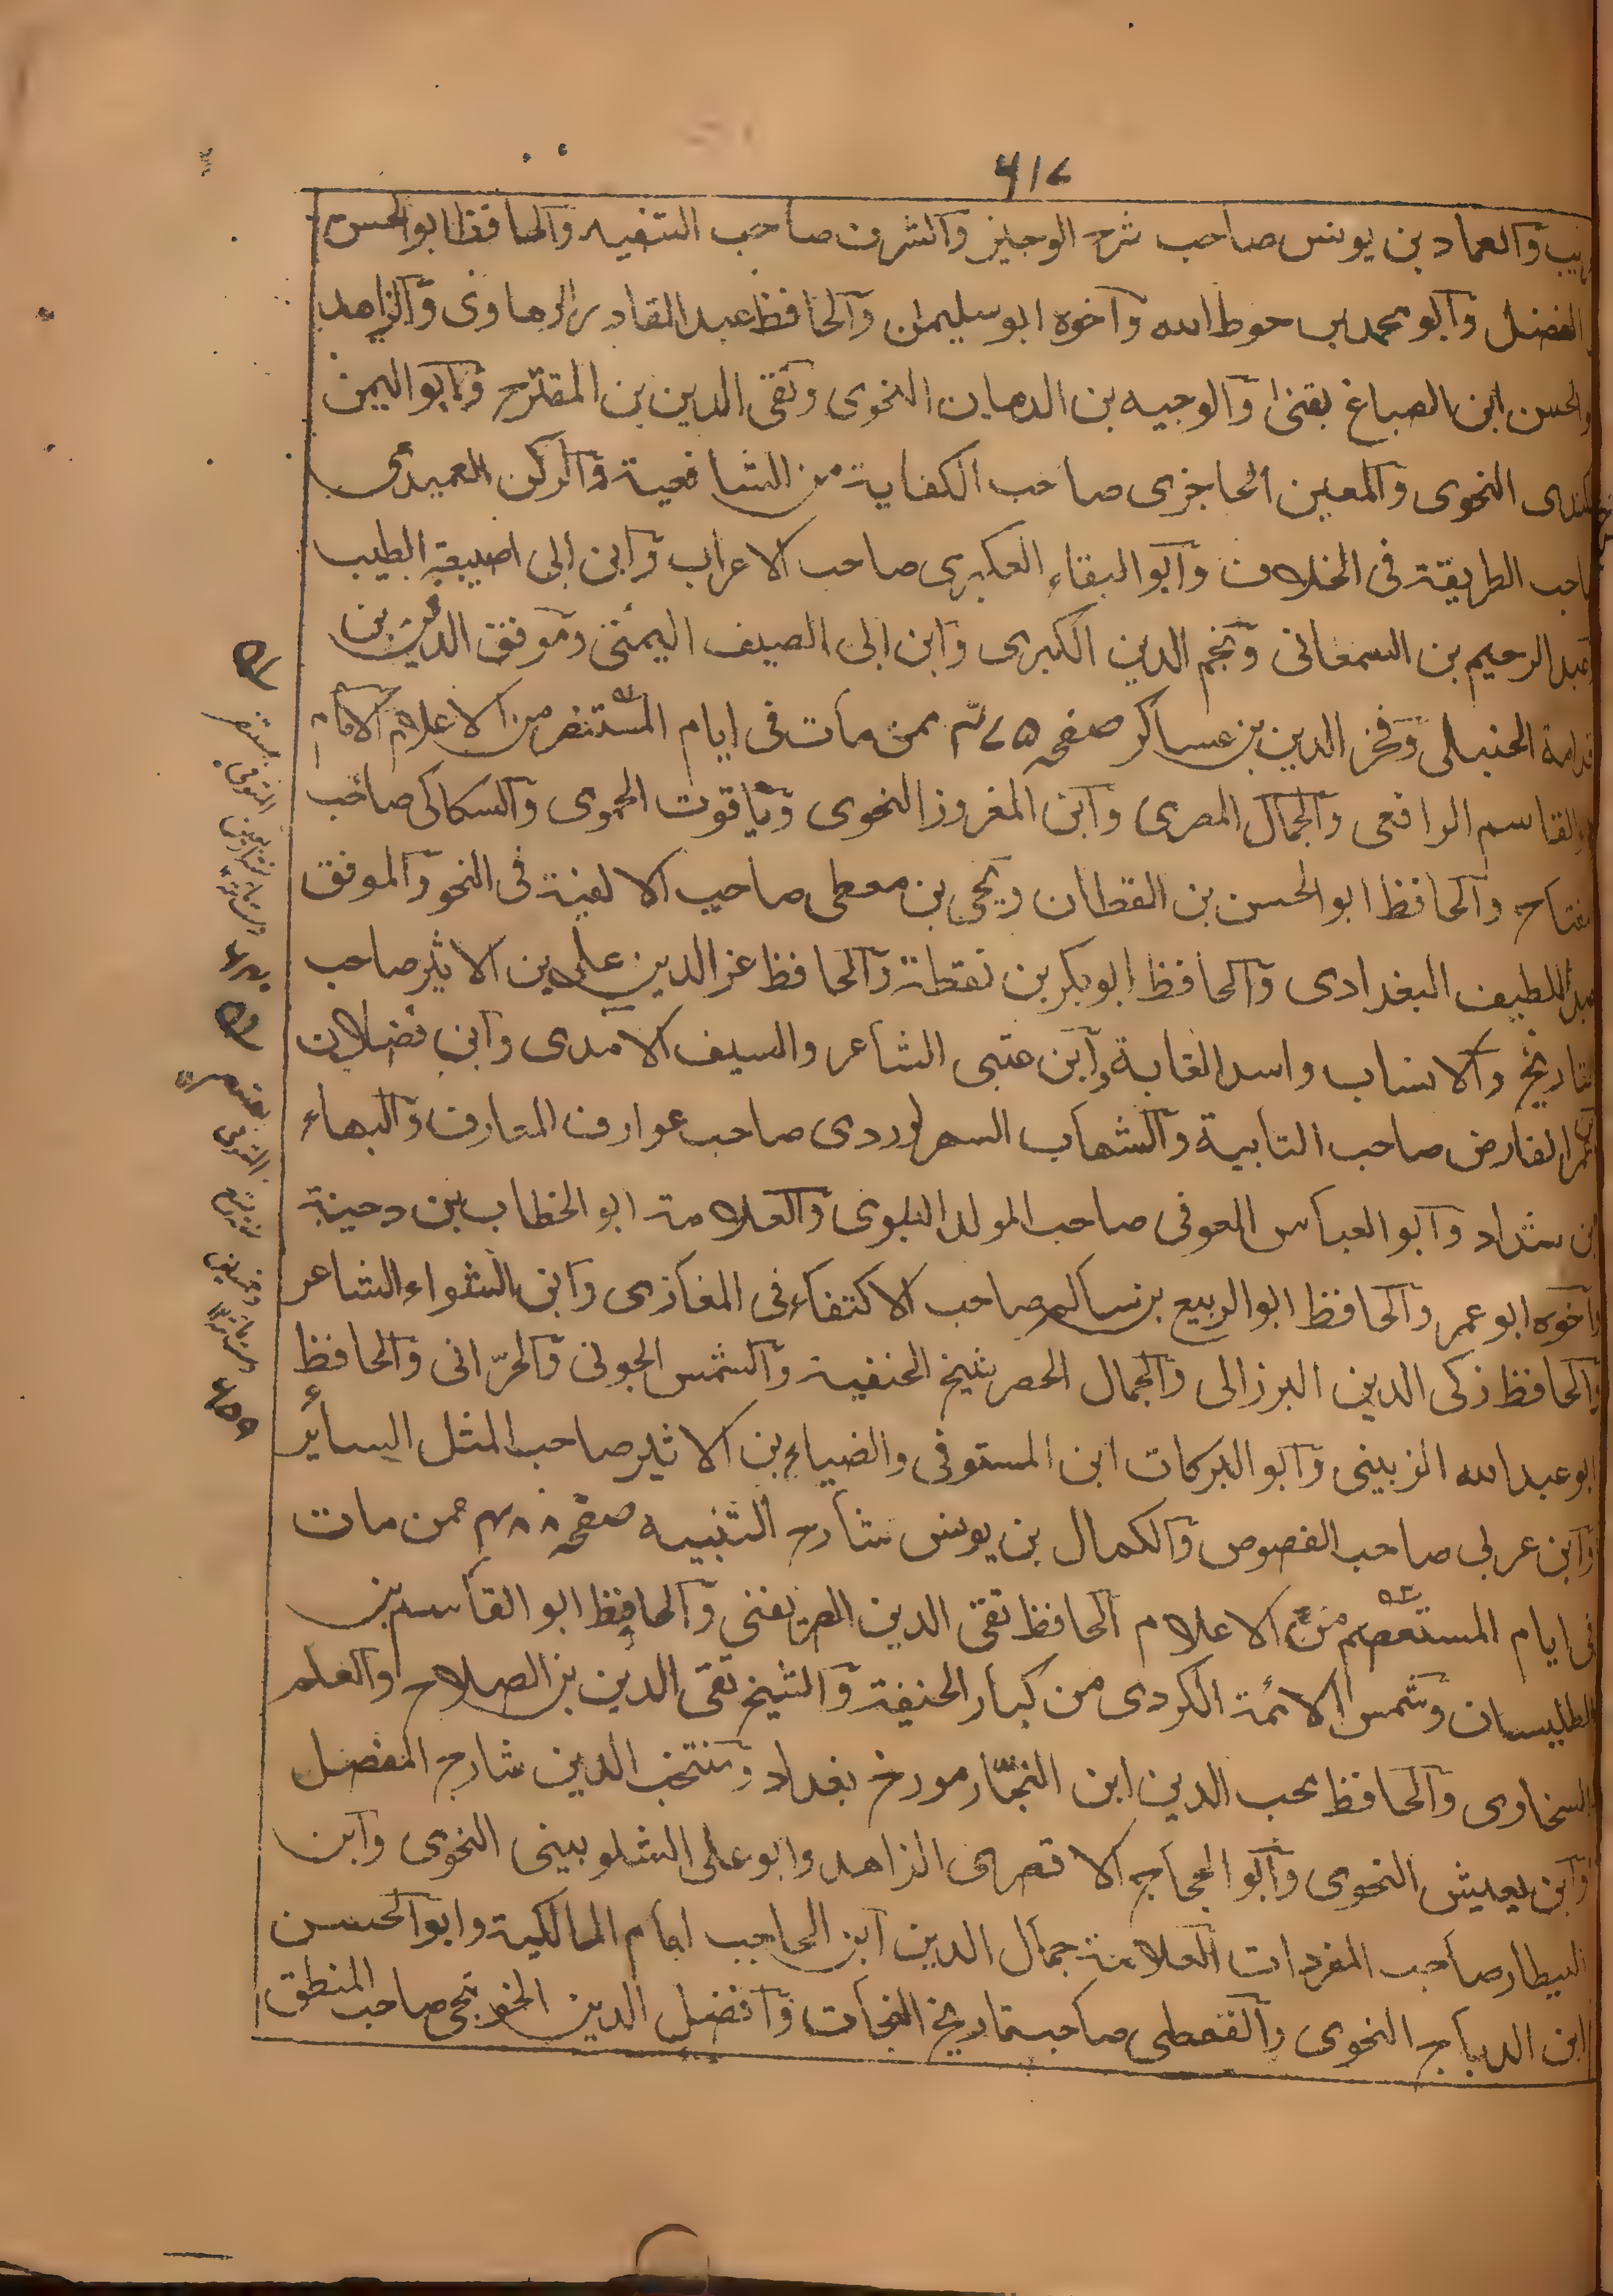 ٦١٧
والعماد بن يونس صاحب شرح الوجيز والشرف صاحب التنفيه والحافظ ابو الحسن
الفضل وابو محمد بن حوط الله واخوه ابو سليمان والحافظ عبد القادر الرهاوى والزاهد
والحسن ابن الصباغ بقنا والوجيه بن الدهان النحوى وتقى الدين بن المقترح وابو اليمن
الكندى النحوى والمعين الحاجزى صاحب الكفاية من الشافعية والركن العميدى
صاحب الطريقة فى الخلاف وابو البقاء العكبرى صاحب الاعراب وابن ابى اصيبعة الطيب
عبد الرحيم بن السمعانى ونجم الدين الكبرى وابن ابى الصيف اليمنى وموفق الدين بن
قدامة الحنبلى وفخر الدين بن عساكر صفحه ٤٧٥ ممن مات فى ايام المستنصر من الاعلام الامام
القاسم الرافعى والجمال المصرى وابن المغروز النحوى وياقوت الحموى والسكاكى صاحب
المفتاح والحافظ ابو الحسن بن القطان ويحى بن معطى صاحب الالفية فى النحو والموفق
عبد اللطيف البغدادى والحافظ ابو بكر بن نقطة والحافظ عز الدين على بن الاثير صاحب
التاريخ والانساب واسد الغابة وابن عتبى الشاعر والسيف الامدى وابن فضلان
عمر ابن الفارض صاحب التابية والشهاب السهروردى صاحب عوارف المعارف والبهاء
بن شداد وابو العباس العوفى صاحب المولد النبوى والعلامة ابو الخطاب بن دحية
واخوه ابو عمر والحافظ ابو الربيع بن سالم صاحب الاكتفاء فى المغازى وابن الشواء الشاعر
والحافظ زكى الدين البرزالى والجمال الحصر شيخ الحنفية والشمس الجونى والحرانى والحافظ
ابو عبد الله الزبينى وابو البركات ابن المستوفى والضياء بن الاثير صاحب المثل السائر
وابن عربى صاحب الفصوص والكمال بن يونس شارح التنبيه صفحه ٤٨٨ ممن مات
فى ايام المستعصم من الاعلام الحافظ تقى الدين الصريفنى والحافظ ابو القاسم بن
الطليسان وشمس الائمة الكردى من كبار الحنيفة والشيخ تقى الدين بن الصلاح والعلم
السخاوى والحافظ محب الدين ابن النجار مورخ بغداد ومنتخب الدين شارح المفصل
وابن يعيش النحوى وابو الحجاج الاقصرى الزاهد وابو على الشلوبينى النحوى وابن
البيطار صاحب المفردات العلامة جمال الدين ابن الحاجب امام المالكية وابو الحسن
ابن الدباج النحوى والقفطى صاحب تاريخ النحات وافضل الدين الخونجى صاحب المنطق